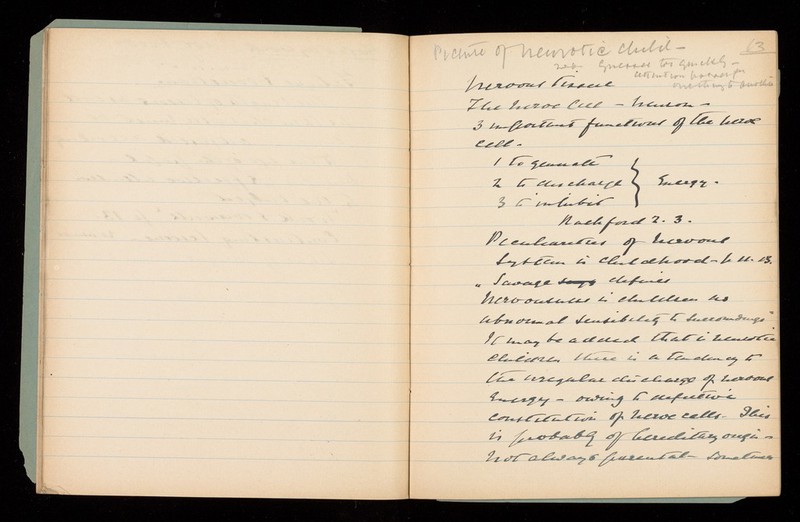 Picture of neurotic child - 63
Energises too quickly -
attention passes from
one thing to another
Nervous Tissue
The Nerve Cell - Neuron -
3 important functions of the nerve
cell.
1 to generate
2 to discharge } Energy.
3 to inhibit
Rachford 2. 3.
Peculiarities of Nervous
System in Childhood -
" Savage says defines
Nervousness in children as
abnormal sensibility to surroundings"
It may be added that in neurotic
children there is a tendency to
the irregular discharge of nervous
Energy - owing to defective
constitution of nerve cells. This
is probably of hereditary origin -
not always parental - Sometimes